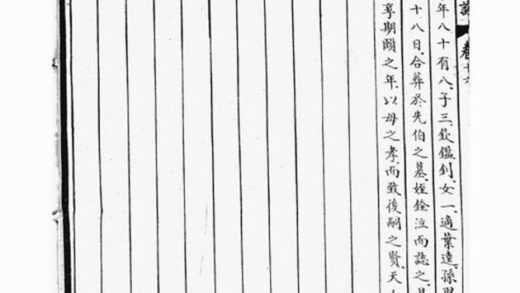 譜 卷十六
年八十有八子三欽鑑釗女一適葉達孫男
十八日合葬於先伯之墓姪銓泣而誌之
享期頤之年以母之孝而致後嗣之賢天